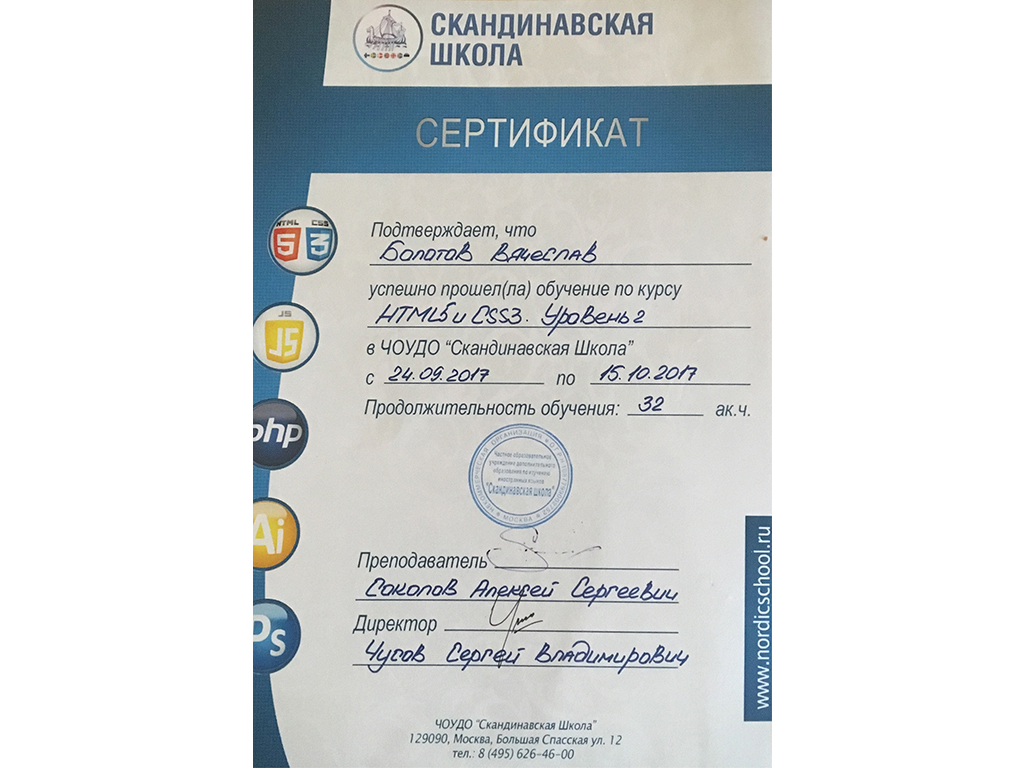 СКАНДИНАВСКАЯ
ШКОЛА
СЕРТИФИКАТ
HTML CSS
5 3
Подтверждает, что
Болотов Вячеслав
успешно прошел(ла) обучение по курсу
HTML5 и CSS3. Уровень 2
JS
JS
в ЧОУДО "Скандинавская Школа"
с 24.09.2017 по 15.10.2017
Продолжительность обучения: 32 ак.ч.
php
НЕКОММЕРЧЕСКАЯ ОРГАНИЗАЦИЯ
Частное образовательное
учреждение дополнительного
образования по изучению
иностранных языков
"Скандинавская школа"
МОСКВА
Ai
Преподаватель
Соколов Алексей Сергеевич
Директор
Чусов Сергей Владимирович
Ps
www.nordicschool.ru
ЧОУДО "Скандинавская Школа"
129090, Москва, Большая Спасская ул. 12
тел.: 8 (495) 626-46-00